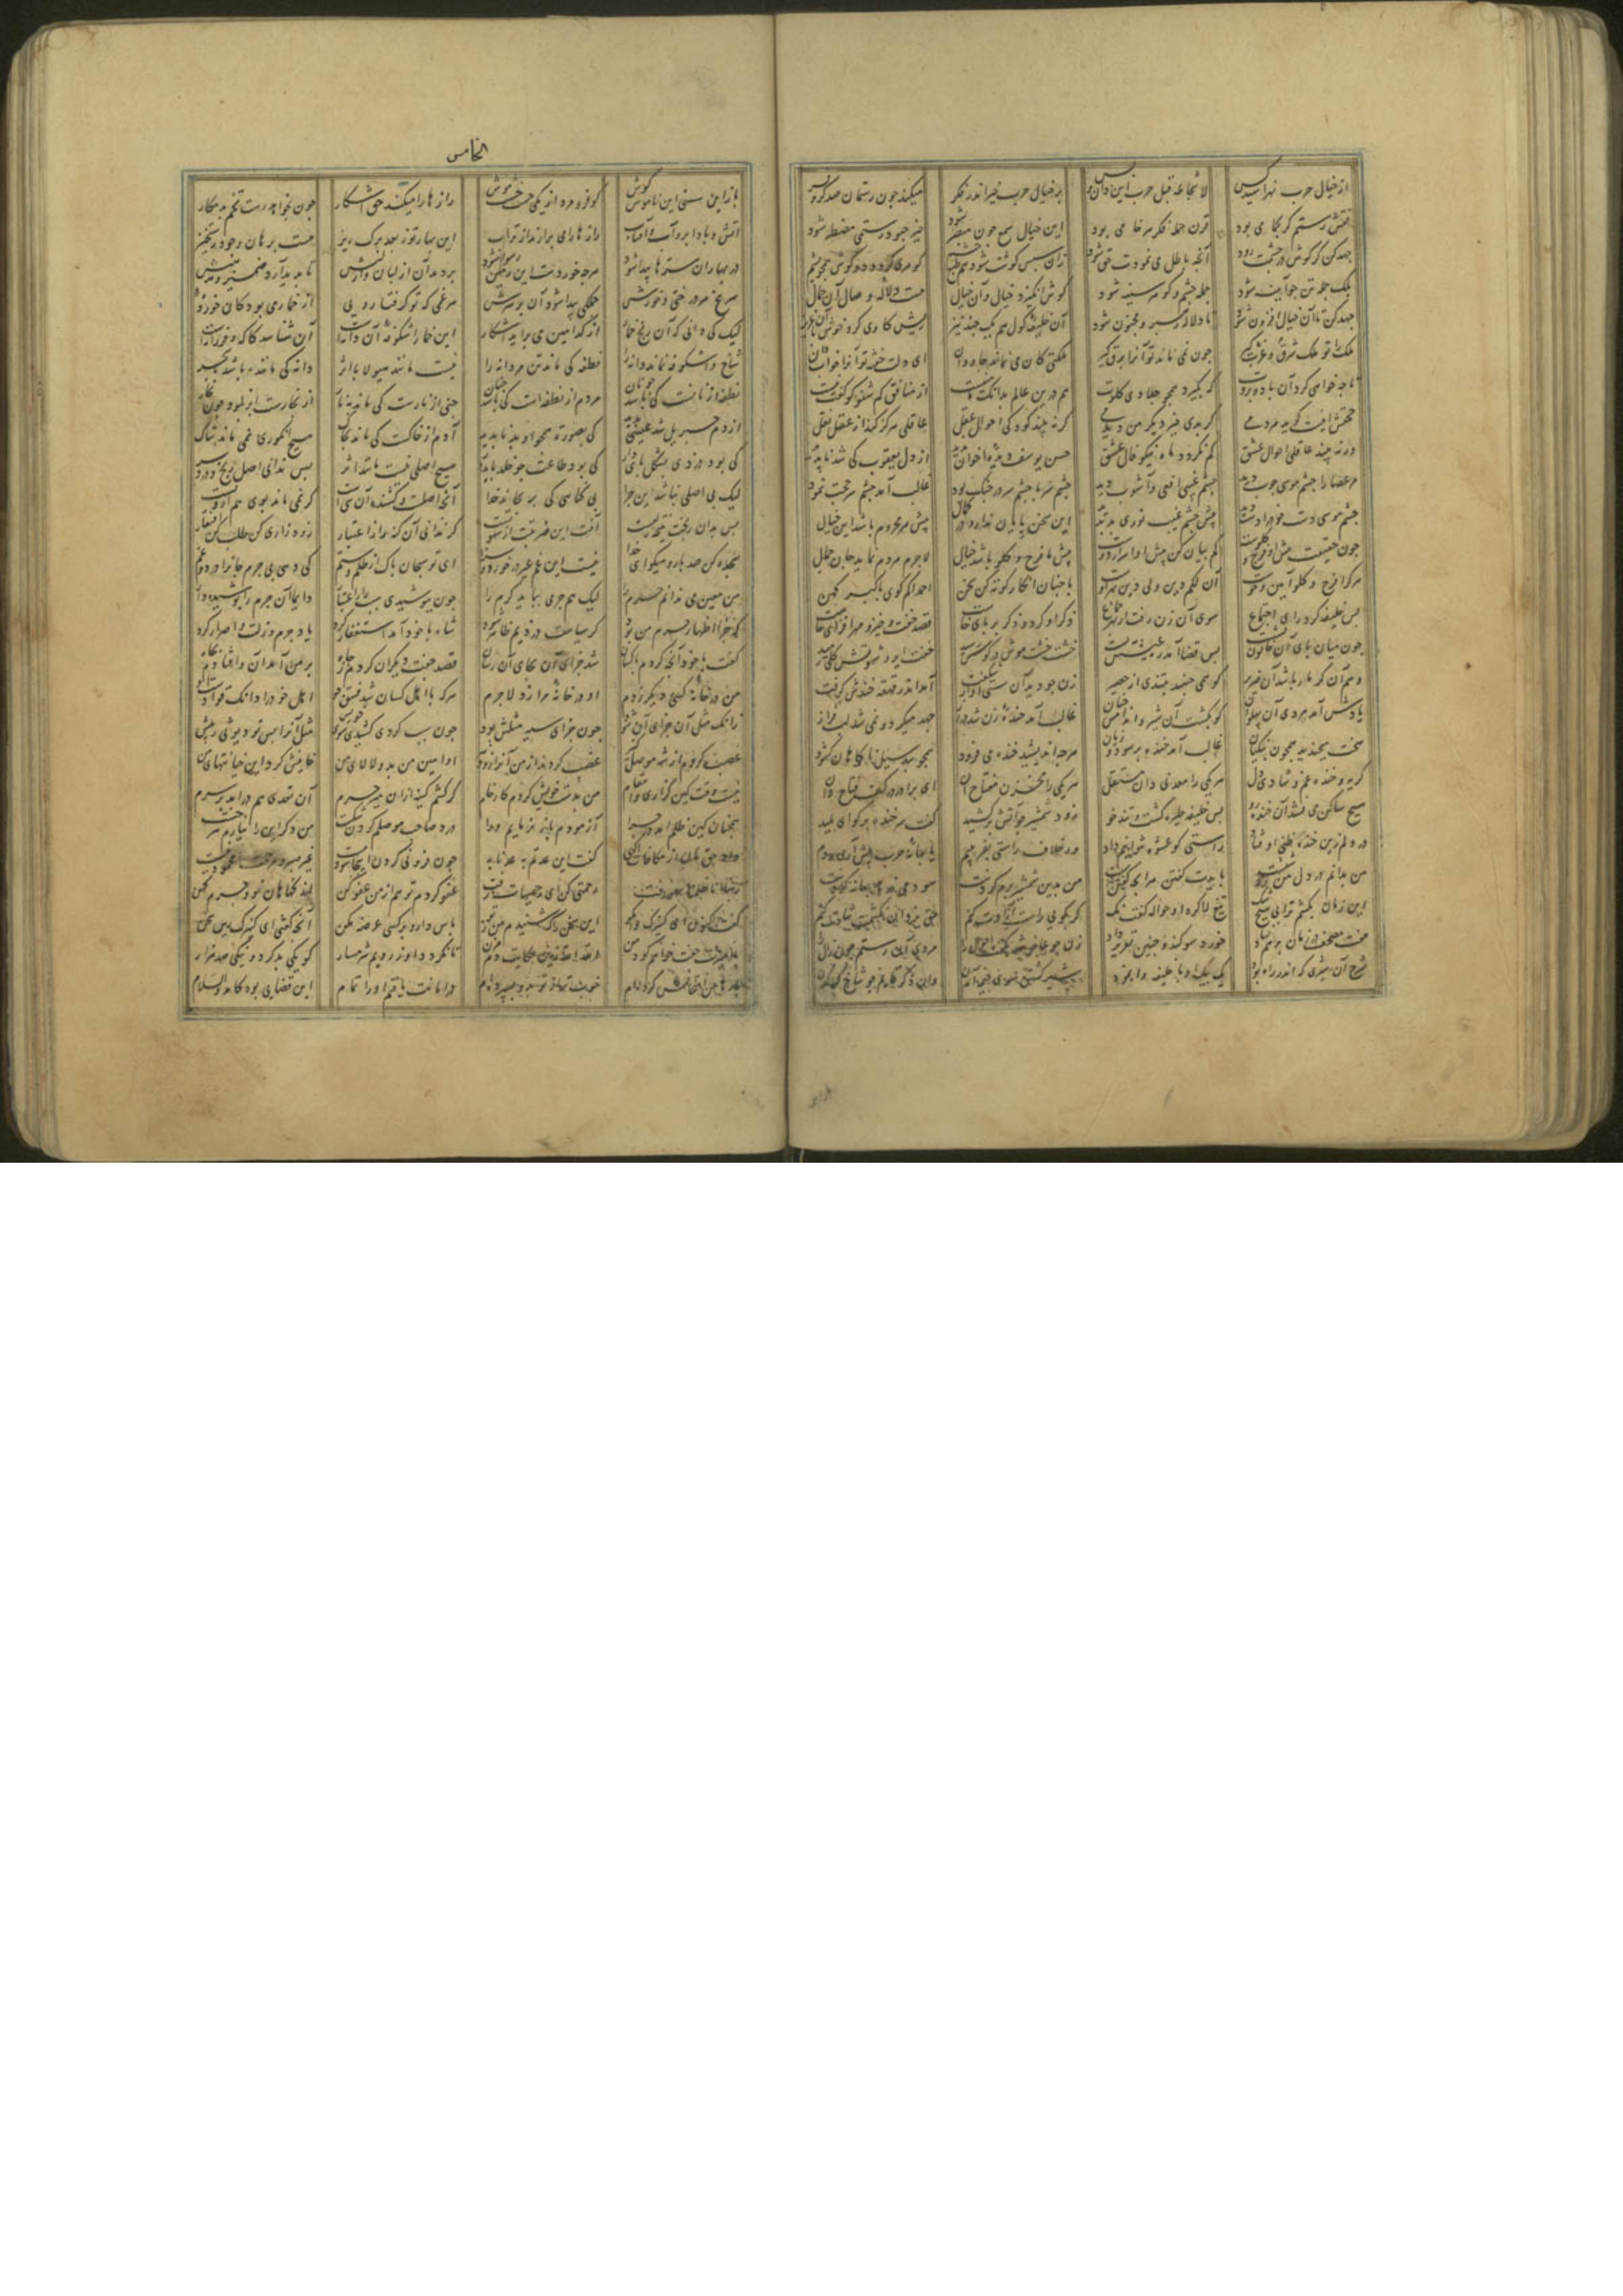 از خیال حرب نهراسید کس لا شجاعه قبل حرب این دان و بس بر خیال حرب خیز اندر فکر میکند جون رستمان صد کر و فر
نقش رستم کر بحمامی بود قرن حمله فکر هر خامی بود این خیال سمع جون مبصر شود حیز جبود رستمی مضطر شود
جهد کن کز کوش در جشمت رود آنجه باطل می نمودت حق شود زان سبس کوشت شود هم طبع جشم کوهری کردد دو کوش همجو یشم
بلک جمله تن جو آینه شود جمله جشم و کوهر سینه شود کوش انکیزد خیال و آن خیال هست دلاله وصال آن جمال
جهد کن تا آن خیال افزون شود تا دلاله رهبر مجنون شود آن خلیفه کول هم یک جند نیز ریش کاوی کرد خوش با آن کنیز
ملک را تو ملک شرق و غرب کیر جون نمی ماند تو آنرا برق کیر ملکتی کان می نماند جاودان ای دلت خفته تو آنرا خواب دان
تا جه خواهی کرد آن باد و بروت که بکیرد همجو جلادی کلوت هم درین عالم بدانک مأمنیست از منافق کم شنو کو کفت نیست
حجتش اینست کوید هر دمی کر بدی جیزی دکر من دیدمی کر نه بیند کودکی احوال عقل عاقلی هرکز کند از عقل نقل
ور نه بیند عاقلی احوال عشق کم نکردد ماه نیکو فال عشق حسن یوسف دیده اخوان ندید از دل یعقوب کی شد نابدید
مر عصا را جشم موسی جوب دید جشم غیبی افعی و آشوب دید جشم سر با جشم سر در جنک بود غالب آمد جشم سر حجت نمود
جشم موسی دست خود را دست دید بیش جشم غیب نوری بد بدید این سخن بایان ندارد در کمال بیش هر محروم باشد این خیال
جون حقیقت بیش او فرج و کلوست کم بیان کن بیش او اسرار دوست بیش ما فرج و کلو باشد خیال لاجرم هر دم نماید جان جمال
هر کرا فرج و کلو آیین و خوست آن لکم دین ولی دین بهر اوست با جنان انکار کوته کن سخن احمدا کم کوی با کبر کهن
بس خلیفه کرد رای اجتماع سوی آن زن رفت از بهر جماع ذکر او کرد و ذکر بر بای خاست قصد خفت و خیز مهر افزای خاست
جون میان بای آن خاتون نشست بس قضا آمد ره عیشش ببست خشت خشت موش در کوشش رسید خفت ایرو شهوتش کلی رمید
وهم آن کز مار باشد آن صریر کو همی جنبد بتندی از حصیر زن جو دید آن سستی او از شکفت آمد اندر قهقهه خنده ش کرفت
یادش آمد مردی آن بهلوان کو بکشت آن شیر و اندامش جنان غالب آمد خنده زن شد دراز جهد میکرد و نمی شد لب فراز
سخت میخندید همجون بنکیان غالب آمد خنده بر سود و زیان هرجه اندیشید خنده می فزود همجو بند سیل ناکاهان کشود
کریه و خنده غم و شادی دل هر یکی را معدنی دان مستقل هر یکی را مخزن مفتاح آن ای برادر در کف فتاح دان
هیج ساکن می نشد آن خنده زو بس خلیفه طیره کشت و تندخو زود شمشیر از غلافش برکشید کفت سر خنده بر کو ای بلید
در دلم زین خنده ظنی اوفتاد راستی کو عشوه نتوانیم داد ور خلاف راستی بفریبیم یا بهانه جرب بیش آری بدم
من بدانم در دل من روشنیست بایدت کفتن هر آنجه کفتنیست
این زمان بکشم ترا بی هیج شک تیغ لا کرد او حواله کفت نک کر بکویی راست آزادت کنم حق یزدان نشکنم شادت کنم
هفت مصحف آن زمان برهم نهاد خورد سوکند و جنین تقریر داد زن جو عاجز شد بکفت احوال را مردی آن رستم صد زال را
شرح آن کردک که اندر راه بود یک بیک با آن خلیفه وا نمود شیر کشتن سوی خیمه آمدن وان ذکر قایم جو شاخ کرکدن
الخامس
باز این سستی این ناموس کوش کو فرو مرد از یکی خش خشت موش رازها را میکند حق آشکار جون بخواهد رست تخم بد مکار
آتش و باد ابر و آب و آفتاب رازها را می برآرند از تراب این بهار نو ز بعد برک ریز هست برهان وجود رستخیز
در بهاران سرها بیدا شود هرجه خوردست این زمین رسوا شود بردمد آن از لبان و از لبش تا بدید آرد ضمیر و مذهبش
سر بیخ هر درختی و خورش جملکی بیدا شود آن بر سرش هر غمی کز تو کرفتار رویی از خمار می بود کان خورده
لیک کی دانی که آن رنج خمار از کدامین می بر آمد آشکار این خمار اشکوفه آن دانه است آن شناسد کاکه و فرزانه است
شاخ و اشکوفه نماند دانه را نطفه کی ماند تن مردانه را نیست مانند هیولا با اثر دانه کی ماننده باشد با شجر
نطفه از نانست کی باشد جو نان مردم از نطفه ست کی باشد جنان جنی از نارست کی ماند بنار از بخارست ابر نبود جون بخار
از دم جبریل عیسی شد بدید کی بصورت همجو او بد نابدید آدم از خاکست کی ماند بخاک هیج انکوری نمی ماند بتاک
کی بود دزدی بشکل بای دار کی بود طاعت جو خلد بایدار هیج اصلی نیست مانند اثر بس ندانی اصل رنج و درد سر
لیک بی اصلی نباشد این جزا بی کناهی کی برنجاند خدا آنج اصلست و کشنده آن شی است کر نمی ماند بوی هم از ویست
بس بدان رنجت نتیجه زلتیست آفت این ضربتت از شهوتیست کر ندانی آن کنه را ز اعتبار زود زاری کن طلب کن اغتفار
سجده کن صد بار و میکو ای خدا نیست این غم غیر در خورد و سزا ای تو سبحان باک از ظلم و ستم کی دهی بی جرم جانرا درد و غم
من معین می ندانم جرم را لیک هم جرمی بباید کرم را جون ببوشیدی سبب را ز اعتبار دایما آن جرم را بوشیده دار
که جزا اظهار جرم من بود کز سیاست دزدیم ظاهر شود شاه با خود آمد استغفار کرد یاد جرم و زلت و اصرار کرد
کفت با خود آنجه کردم با کسان شد جزای آن بجای آن رسان قصد جفت دیکران کردم ز جاه بر من آمد آن و افتادم بجاه
من در خانه کسی دیکر زدم او در خانه مرا زد لاجرم هر که با اهل کسان شد فسق جو اهل خود را دان که قوادست او
زانک مثل آن جزای آن شود جون جزای سیئه مثلش بود جون سبب کردی کشیدی سوی خویش مثل آنرا بس تو دیوثی ز بیش
غصب کردم از شه موصل کنیز غصب کردند از من آنرا زود نیز او امین من بد و لالای من خاینش کرد آن خیانتهای من
نیست وقت کین کزاری و انتقام من بدست خویش کردم کار خام کر کشم کینه ازان میر و حرم آن تعدی هم در آید بر سرم
همجنانک این ظلم آمد در جزا آزمودم باز نزمایم ورا درد صاحب موصلم کردن شکست من دکر این را نیارم نیز خست
داد حق مان از مکافات آکهی کفت ان عدتم به عدنا به جون فزونی کردن اینجا سود نیست غیر صبر و مرحمت محمود نیست
ربنا انا ظلمنا سهو رفت رحمتی کن ای رحیمیهات زفت عفو کردم تو هم از من عفو کن از کناهان نو و جرم کهن
کفت اکنون ای کنیزک وا مکو این سخن را که شنیدم من ز تو باس دار و بر کسی عرضه مکن آنجه کفتی ای کنیزک این سخن
با امیرت جفت خواهم کرد من الله الله زین حکایت دم مزن تا نکردد او ز رویم شرمسار کو یکی بد کرد و نیکی صد هزار
بارها من امتحانش کرده ام خوبتر از تو بدو بسبرده ام در امانت یافتم او را تمام این قضایی بود کامد والسلام